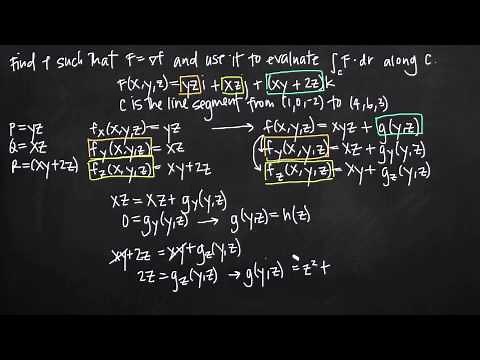 Find f such that F=∇f and use it to evaluate ∫_C F·dr along C.
F(x,y,z)= yz i + xz j + (xy+2z) k
C is the line segment from (1,0,-2) to (4,6,3)
P=yz f_x(x,y,z)=yz → f(x,y,z) = xyz + g(y,z)
Q=xz f_y(x,y,z)=xz f_y(x,y,z) = xz + g_y(y,z)
R=(xy+2z) f_z(x,y,z)=xy+2z f_z(x,y,z) = xy + g_z(y,z)
xz = xz + g_y(y,z)
0=g_y(y,z) → g(y,z)=h(z)
xy+2z = xy+g_z(y,z)
2z=g_z(y,z) → g(y,z) = z² +